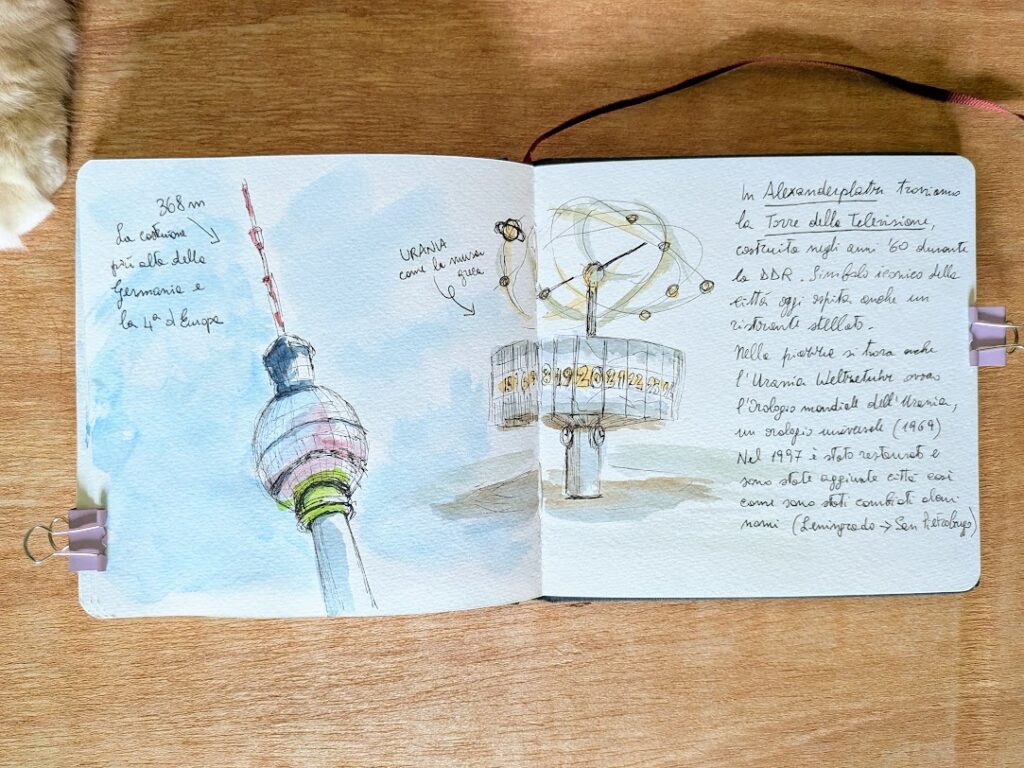 368m
La costruzione
più alta della
Germania e
la 4ª d'Europa
URANIA
come la musa
greca
In Alexanderplatz troviamo
la Torre della Televisione,
costruita negli anni '60 durante
la DDR. Simbolo iconico della
città oggi ospita anche un
ristorante stellato.
Nella piazza si trova anche
l'Urania Weltzeituhr ovvero
l'Orologio mondiale dell'Urania,
un orologio universale (1969)
Nel 1997 è stato restaurato e
sono state aggiunte città così
come sono stati cambiati alcuni
nomi (Leningrado → San Pietroburgo)
19 20 21 22 23